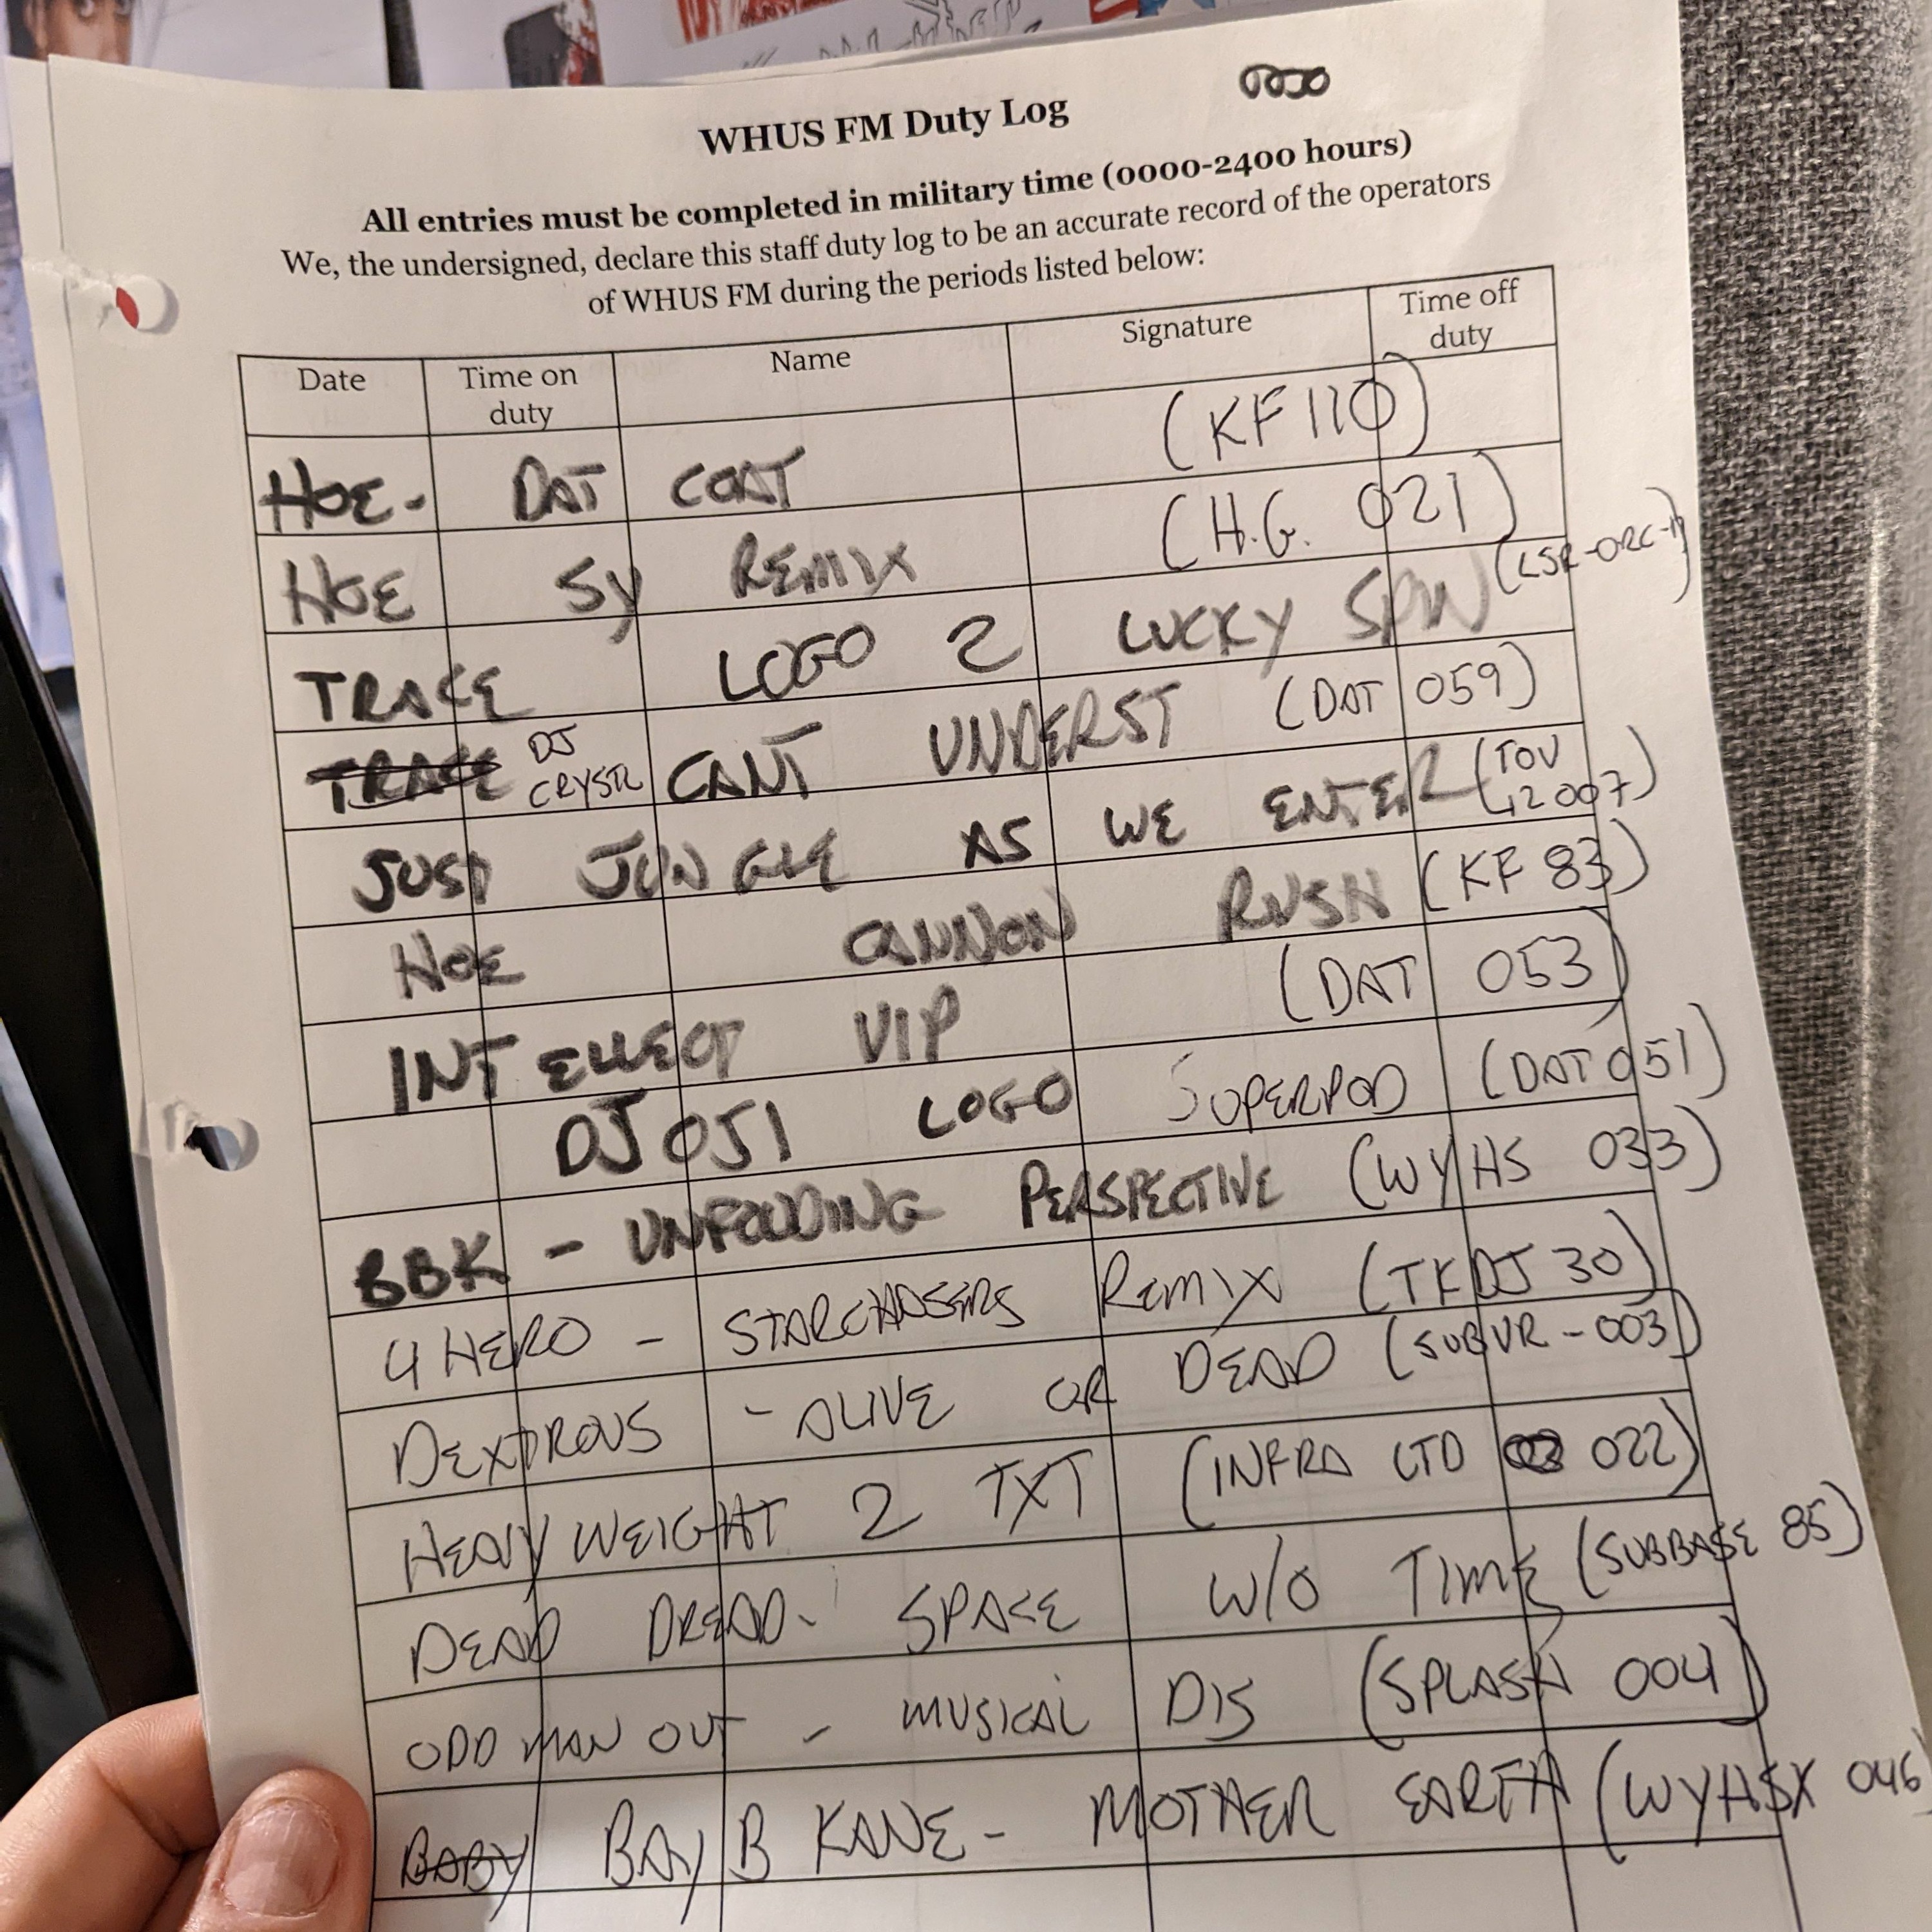 WHUS FM Duty Log
All entries must be completed in military time (0000-2400 hours)
We, the undersigned, declare this staff duty log to be an accurate record of the operators
of WHUS FM during the periods listed below:
Date Time on duty Name Signature Time off duty
HOE - DAT COAT (KF 110)
HOE SY REMIX (H.G. 021)
TRACE LOGO 2 LUCKY SPIN
TRACE DJ CRYSTL CANT UNDERST (DAT 059)
JUST JUNGLE AS WE ENTER (TOV 12007)
HOE CANNON RUSH (KF 83)
INTELLECT VIP (DAT 053)
DJ LOGO SUPERPOD (DAT 051)
BBK - UNFOLDING PERSPECTIVE (WYHS 033)
4 HERO - STARCHASERS REMIX (TKDJ 30)
DEXTROUS - ALIVE OR DEAD (SUBVR-003)
HEAVYWEIGHT 2 TXT (INFRA LTD 022)
DEAD DREAD - SPACE W/O TIME (SUBBASE 85)
ODD MAN OUT - MUSICAL DIS (SPLASH 004)
BABY BAY B KANE - MOTHER EARTH (WYHSX 046)